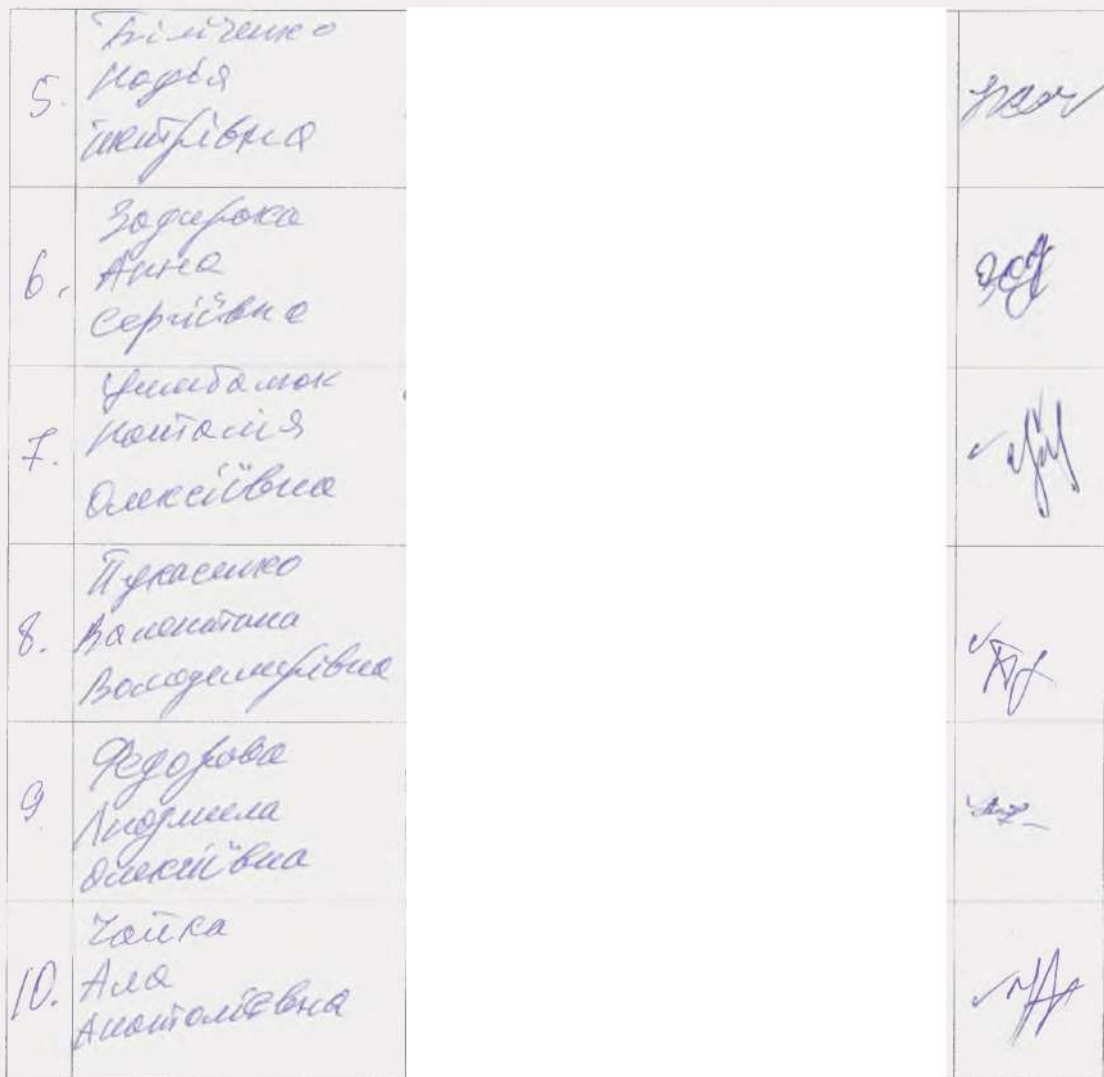 5. Біліченко
Надія
Дмитрівна
6. Задирака
Анна
Сергіївна
7.
Наталія
Олексіївна
8. Лукасенко
Валентина
Володимирівна
9 Федорова
Людмила
Олексіївна
10. Чайка
Ала
Анатоліївна